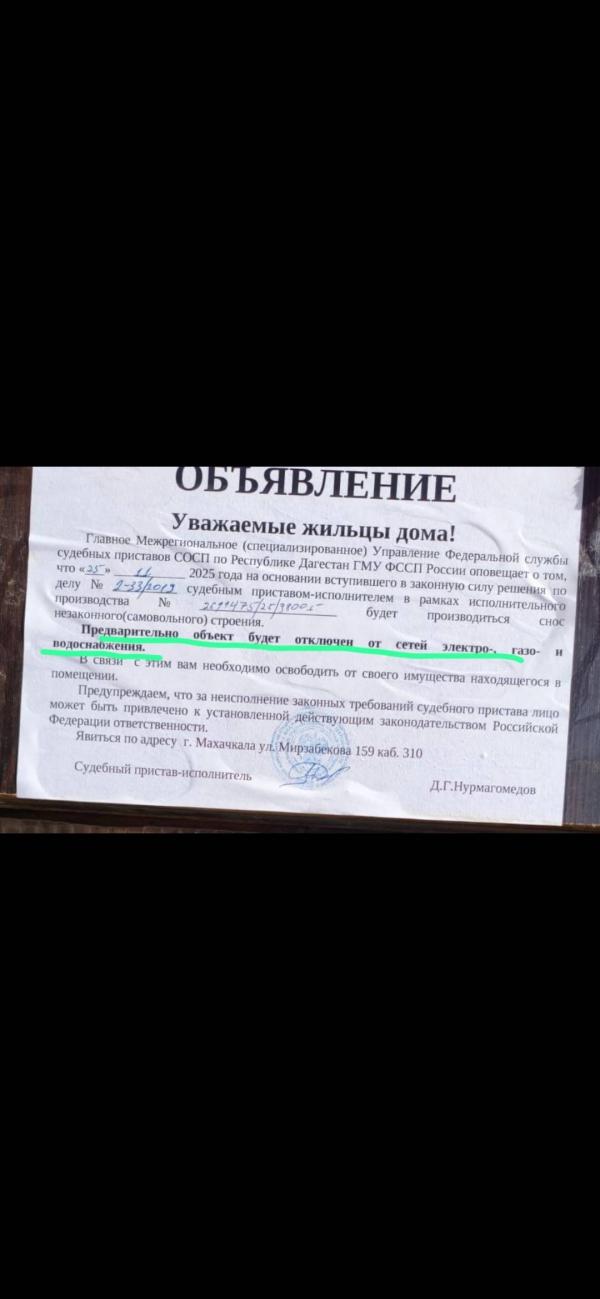 ОБЪЯВЛЕНИЕ
Уважаемые жильцы дома!
Главное Межрегиональное (специализированное) Управление Федеральной службы
судебных приставов СОСП по Республике Дагестан ГМУ ФССП России оповещает о том,
что «25» 11 2025 года на основании вступившего в законную силу решения по
делу № 2-33/2019 судебным приставом-исполнителем в рамках исполнительного
производства № будет производиться снос
незаконного(самовольного) строения.
Предварительно объект будет отключен от сетей электро-, газо- и
водоснабжения.
В связи с этим вам необходимо освободить от своего имущества находящегося в
помещении.
Предупреждаем, что за неисполнение законных требований судебного пристава лицо
может быть привлечено к установленной действующим законодательством Российской
Федерации ответственности.
Явиться по адресу г. Махачкала ул. Мирзабекова 159 каб. 310
Судебный пристав-исполнитель
Д.Г.Нурмагомедов